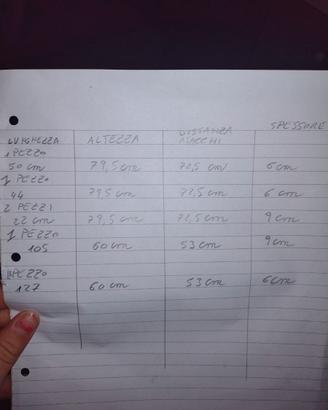 SPESSORE
LUNGHEZZA ALTEZZA DISTANZA
1 PEZZO GANCHI
50 cm 79,5 cm 72,5 cm 6 cm
1 PEZZO
44 79,5 cm 72,5 cm 6 cm
2 PEZZI
22 cm 79,5 cm 72,5 cm 9 cm
1 PEZZO
105 60 cm 53 cm 9 cm
1 PEZZO
127 60 cm 53 cm 6 cm